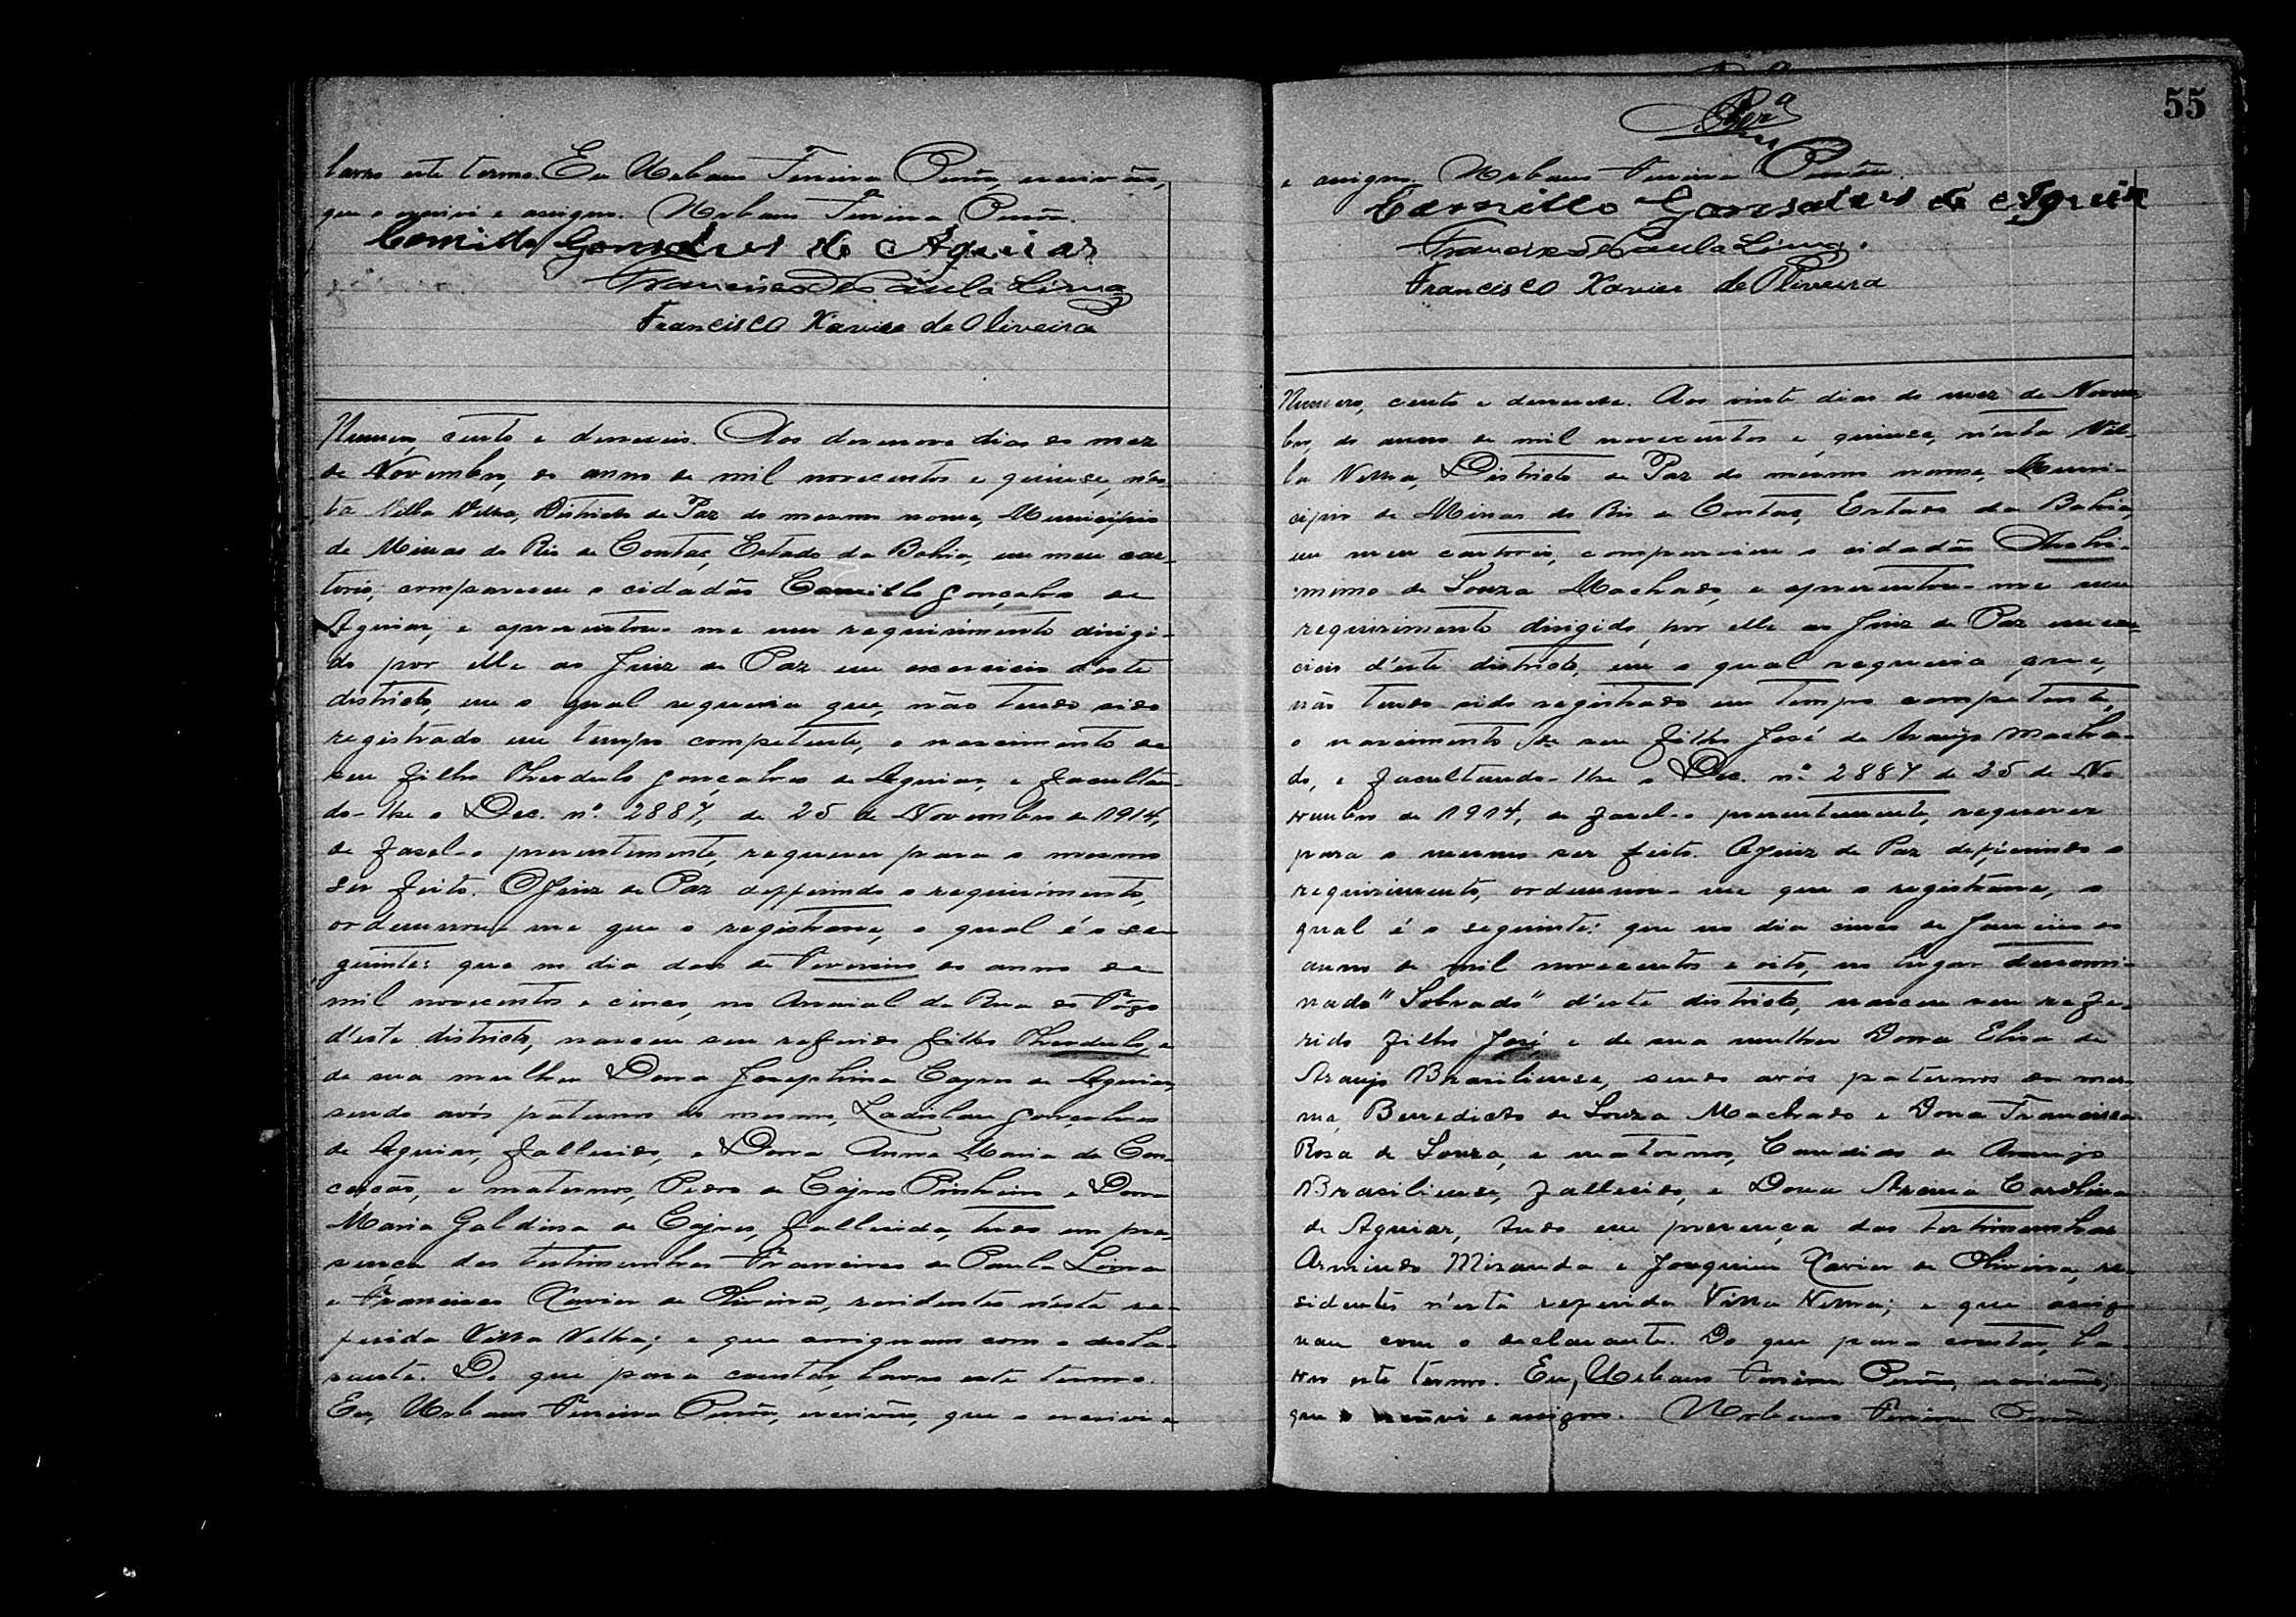 lavro este termo. Eu Urbano Ferreira, escrivão,
que o escrevi e assigno. Urbano Ferreira
Camillo Gonsalves de Aguiar
Francisco de Paula Lima
Francisco Xavier de Oliveira
Numero, cento e deseseis. Aos desenove dias do mez
de Novembro, do anno de mil novecentos e quinse, n'es-
ta Villa Velha, Districto de Paz do mesmo nome, Municipio
de Minas do Rio de Contas, Estado da Bahia, em meu car-
torio, compareceu o cidadão Camillo Gonçalves de
Aguiar, e apresentou-me um requirimento dirigi-
do por elle ao Juiz de Paz em exercicio d'este
districto, em o qual requeria que, não tendo sido
registrado em tempo competente, o nascimento de
seu filho Theodulo Gonçalves de Aguiar, e facultan-
do-lhe o Dec. nº. 2887, de 25 de Novembro de 1914,
de fasel-o presentemente, requerer para o mesmo
ser feito. O Juiz de Paz defferindo o requirimento,
ordennou-me que o registrasse, o qual é o se-
guinte: que no dia dois de Fevereiro do anno de
mil novecentos e cinco, no Arraial da Rua do Fogo
d'este districto, nasceu seu referido filho Theodulo, e
de sua mulher Dona Josephina Cayres de Aguiar,
sendo avós paternos do mesmo, Ladislau Gonçalves
de Aguiar, fallecido, e Dona Anna Maria da Con-
ceição, e maternos, Pedro de Cayres Pinheiro e Dona
Maria Galdina de Cayres, fallecida, tudo em pre-
sença das testimunhas Francisco de Paula Lima
e Francisco Xavier de Oliveira, residentes n'esta re-
ferida Villa Velha; e que assignam com o decla-
rante. Do que para constar, lavro este termo.
Eu, Urbano Ferreira, escrivão, que o escrevi e
55
e assigno. Urbano Ferreira
Camillo Gonsalves de Aguiar
Francisco de Paula Lima.
Francisco Xavier de Oliveira
Numero, cento e desesete. Aos vinte dias do mez de Novem-
bro, do anno de mil novecentos e quinse, n'esta Vil-
la Velha, Districto de Paz do mesmo nome, Muni-
cipio de Minas do Rio de Contas, Estado da Bahia,
em meu cartorio, compareceu o cidadão Archi-
mimo de Souza Machado, e apresentou-me um
requirimento dirigido por elle ao Juiz de Paz em exer-
cicio d'este districto, em o qual requeria que,
não tendo sido registrado em tempo competente,
o nascimento de seu filho José de Araujo Macha-
do, e facultando-lhe o Dec. nº. 2887 de 25 de No-
vembro de 1914, de fasel-o presentemente, requerer
para o mesmo ser feito. O Juiz de Paz deferindo o
requirimento, ordennou-me que o registrasse, o
qual é o seguinte: que no dia cinco de Janeiro do
anno de mil novecentos e oito, no lugar denomi-
nado "Sobrado" d'este districto, nasceu seu refe-
rido filho José e de sua mulher Dona Elisa de
Araujo Brasiliense, sendo avós paternos do mes-
mo, Benedicto de Souza Machado e Dona Francisca
Rosa de Souza, e maternos, Candido de Araujo
Brasiliense, fallecido, e Dona Carolina
de Aguiar, tudo em presença das testimunhas
Armindo Miranda e Joaquim Xavier de Oliveira, re-
sidentes n'esta referida Villa Velha; e que assig-
nam com o declarante. Do que para constar, la-
vro este termo. Eu, Urbano Ferreira, escrivão,
que o escrevi e assigno. Urbano Ferreira